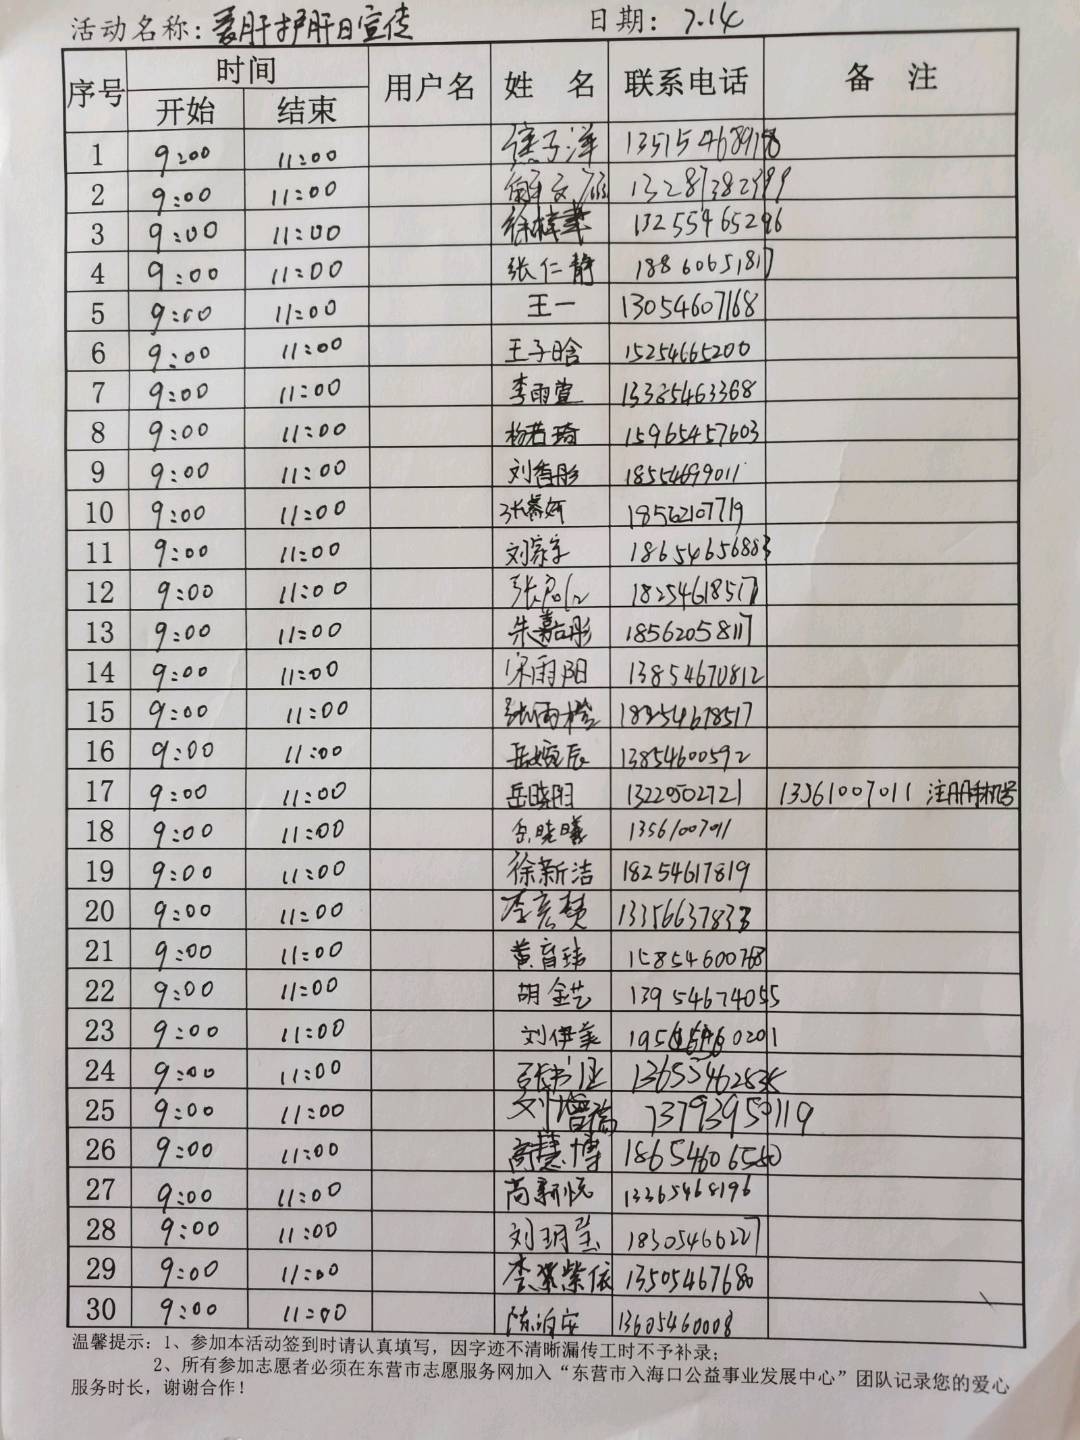 活动名称：爱肝护肝日宣传 日期：7.14
序号 时间 用户名 姓 名 联系电话 备 注
开始 结束
1 9:00 11:00 焦子洋
2 9:00 11:00
3 9:00 11:00 13255465296
4 9:00 11:00 张仁静 18860651817
5 9:00 11:00 王一 13054607168
6 9:00 11:00 王子晗 15254665200
7 9:00 11:00 李雨萱 13385463368
8 9:00 11:00 杨若琦 15965457603
9 9:00 11:00 刘香彤 18554699011
10 9:00 11:00 张慕妍 18562107719
11 9:00 11:00 刘家宇 18654656883
12 9:00 11:00 18254618517
13 9:00 11:00 朱嘉彤 18562058117
14 9:00 11:00 宋雨阳 13854670812
15 9:00 11:00 张雨橙 18254618517
16 9:00 11:00 岳婉辰 13854600592
17 9:00 11:00 岳晓阳 13220502721 13561007011 注册手机号
18 9:00 11:00 岳晓曦 13561007011
19 9:00 11:00 徐新洁 18254617819
20 9:00 11:00
21 9:00 11:00 黄育玮 15854600768
22 9:00 11:00 胡金艺 13954674055
23 9:00 11:00 刘伊美
24 9:00 11:00
25 9:00 11:00 刘增瑞 13793950119
26 9:00 11:00 高慧博 18654606550
27 9:00 11:00 尚新悦 13365468196
28 9:00 11:00 刘玥莹 18305466227
29 9:00 11:00 李紫依 13505467680
30 9:00 11:00 陈泊安 13605460008
温馨提示：1、参加本活动签到时请认真填写，因字迹不清晰漏传工时不予补录；
2、所有参加志愿者必须在东营市志愿服务网加入“东营市入海口公益事业发展中心”团队记录您的爱心
服务时长，谢谢合作！